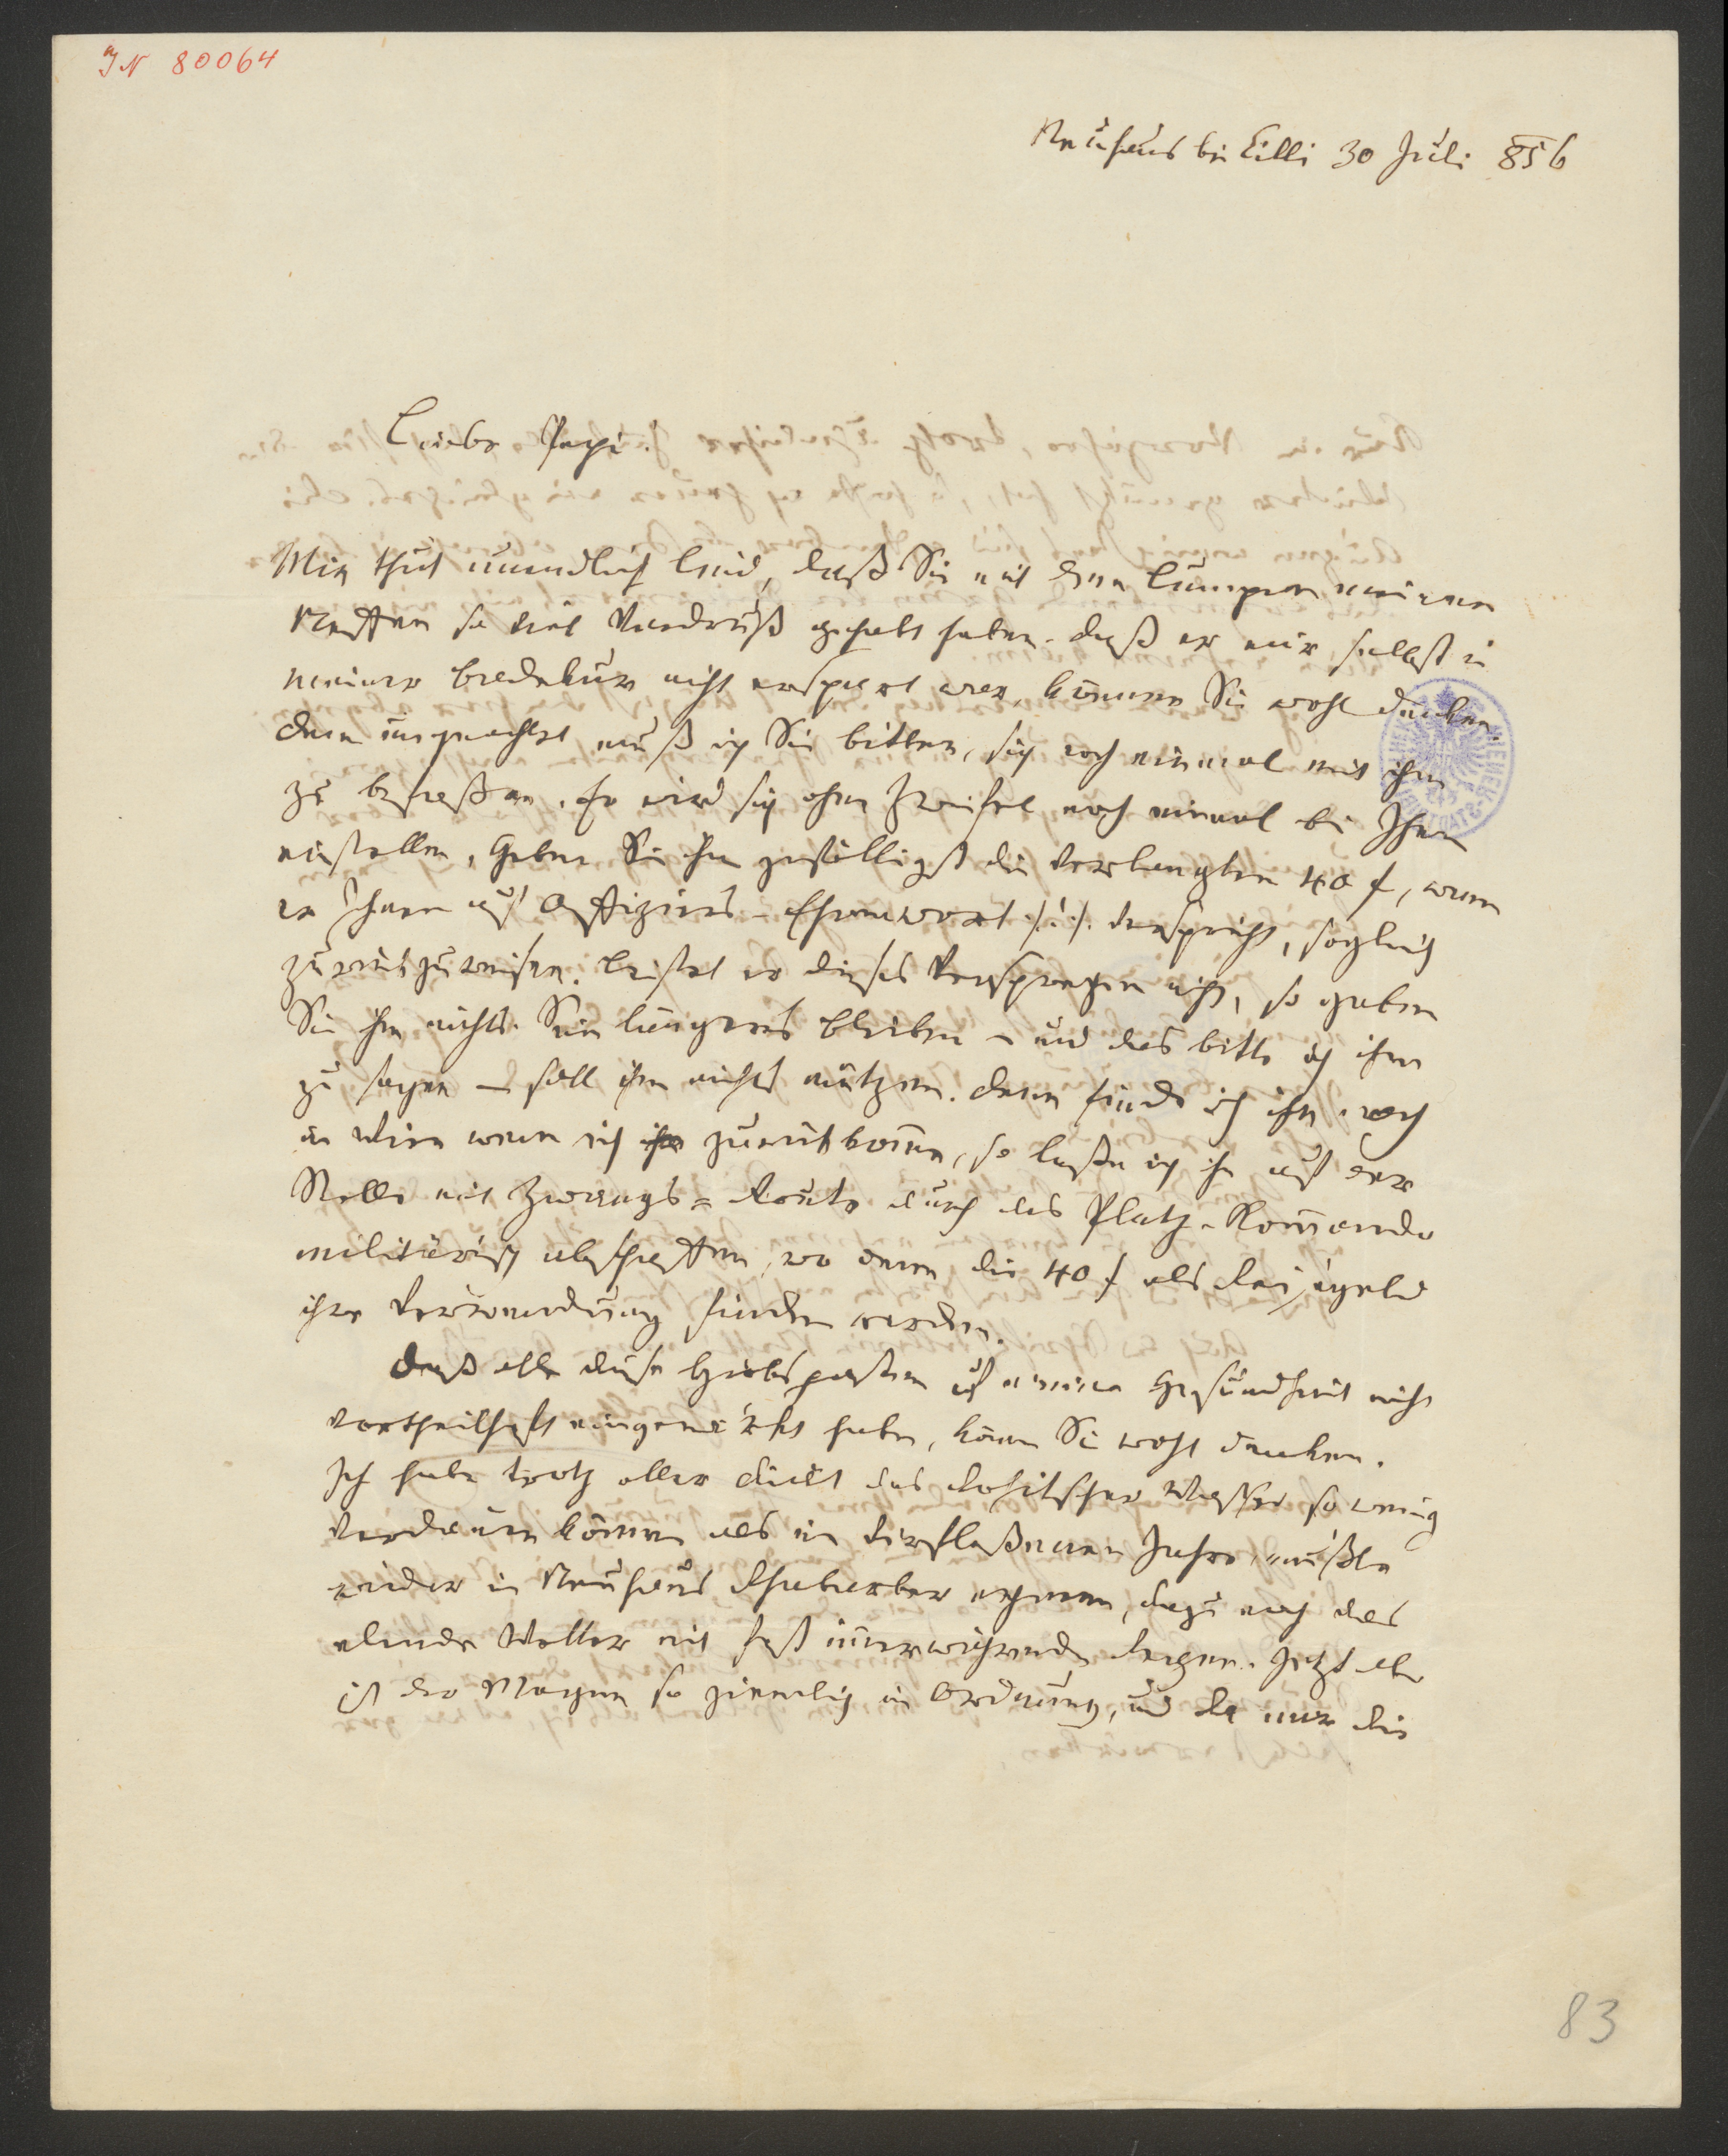 IN 80064
Neuhaus bei Cilli 30 Juli 856
Liebe Pepi!
Mir thut unendlich leid, daß Sie mit dem Lumpen meinem
Neffen so viel Verdruß gehabt haben. Daß er mir selbst in
meiner Badekur nicht erspart war, können Sie wohl denken.
Dem ungeachtet muß ich Sie bitten, sich noch einmal mit ihm
zu befaßen. Er wird sich ohne Zweifel noch einmal bei Ihnen
einstellen, Geben Sie ihm gefälligst die verlangten 40 f, wenn
er Ihnen auf Offiziers-Ehrenwort /:!:/ verspricht, sogleich
zurückzureisen. Leistet er dieses Versprechen nicht, so geben
Sie ihm nichts. Sein längeres Bleiben – und das bitte ich ihm
zu sagen – soll ihm nichts nützen. Denn finde ich ihn noch
in Wien wenn ich ihn zurückkomme, so laße ich ihn auf der
Stelle mit Zwangs=Route durch das Platz-Kommando
militärisch abschaffen, wo dann die 40 f als Reisegeld
ihre Verwendung finden werden.
Daß alle diese Hiobsposten auf meine Gesundheit nicht
vortheilhaft eingewirkt haben, können Sie wohl denken.
Ich habe trotz aller Diät das Rohitscher Wasser so wenig
verdauen können als im verfloßenen Jahre, mußte
wieder in Neuhaus Rhabarber nehmen, dazu noch das
elende Wetter mit fast immerwährendem Regen. Jetzt aber
ist der Magen so ziemlich in Ordnung, und da mir die
83